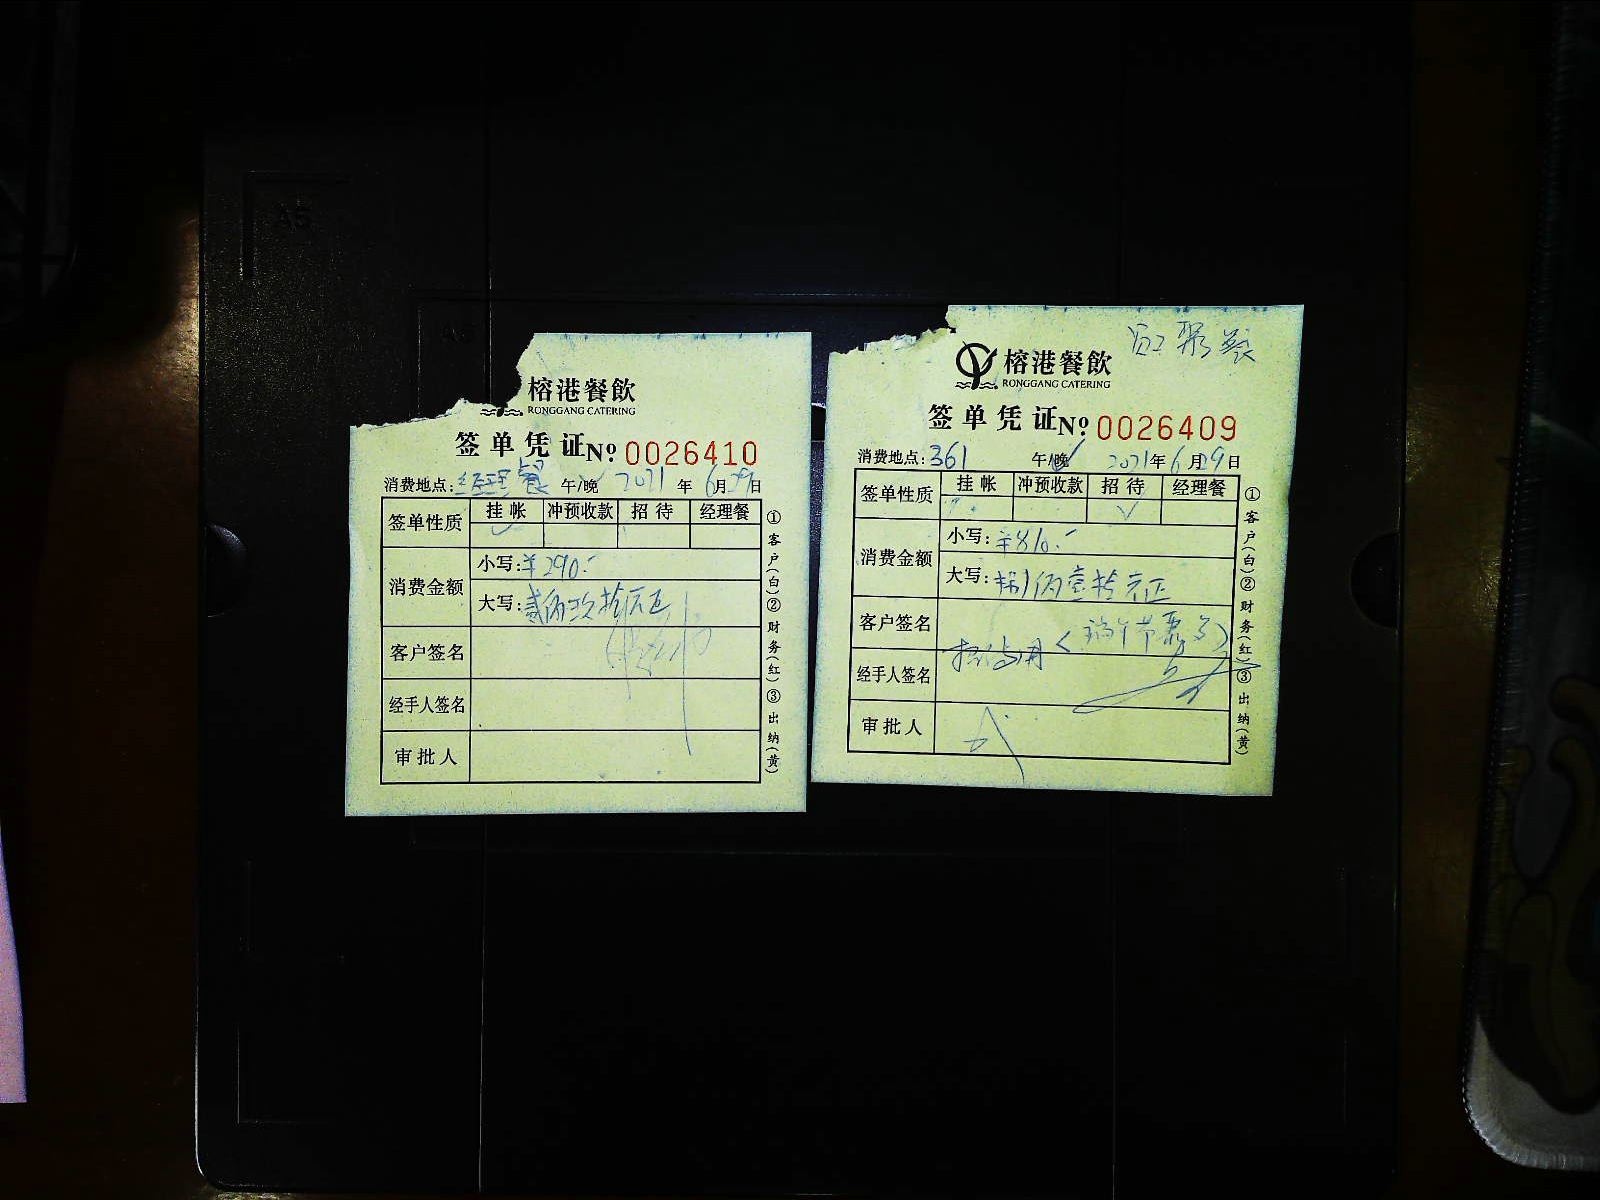 A5
榕港餐飲
RONGGANG CATERING
签单凭证 № 0026410
消费地点: 经理餐 午/晚 2021年6月29日
签单性质 挂帐 冲预收款 招待 经理餐
✓
消费金额 小写: ¥290.-
大写: 贰佰玖拾元正
客户签名
经手人签名
审批人
①客户(白)②财务(红)③出纳(黄)
员工聚餐
榕港餐飲
RONGGANG CATERING
签单凭证 № 0026409
消费地点: 361 午/晚 ✓ 2021年6月29日
签单性质 挂帐 冲预收款 招待 经理餐
✓
消费金额 小写: ¥810.-
大写: 捌佰壹拾元正
客户签名 (端午节
经手人签名
审批人
①客户(白)②财务(红)③出纳(黄)